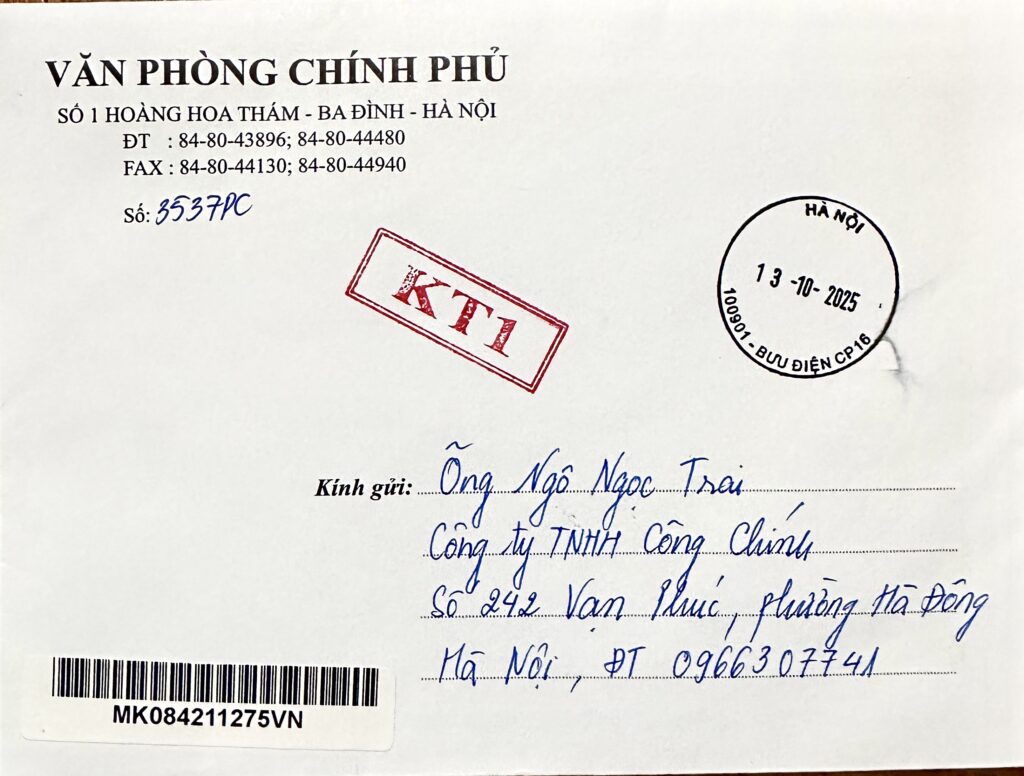 VĂN PHÒNG CHÍNH PHỦ
SỐ 1 HOÀNG HOA THÁM - BA ĐÌNH - HÀ NỘI
ĐT : 84-80-43896; 84-80-44480
FAX : 84-80-44130; 84-80-44940
Số: 3537PC
KT1
HÀ NỘI
13-10-2025
100901 - BƯU ĐIỆN CP16
Kính gửi: Ông Ngô Ngọc Trai
Công ty TNHH Công Chính
Số 242 Vạn Phúc, phường Hà Đông
Hà Nội, ĐT 0966307741
MK084211275VN